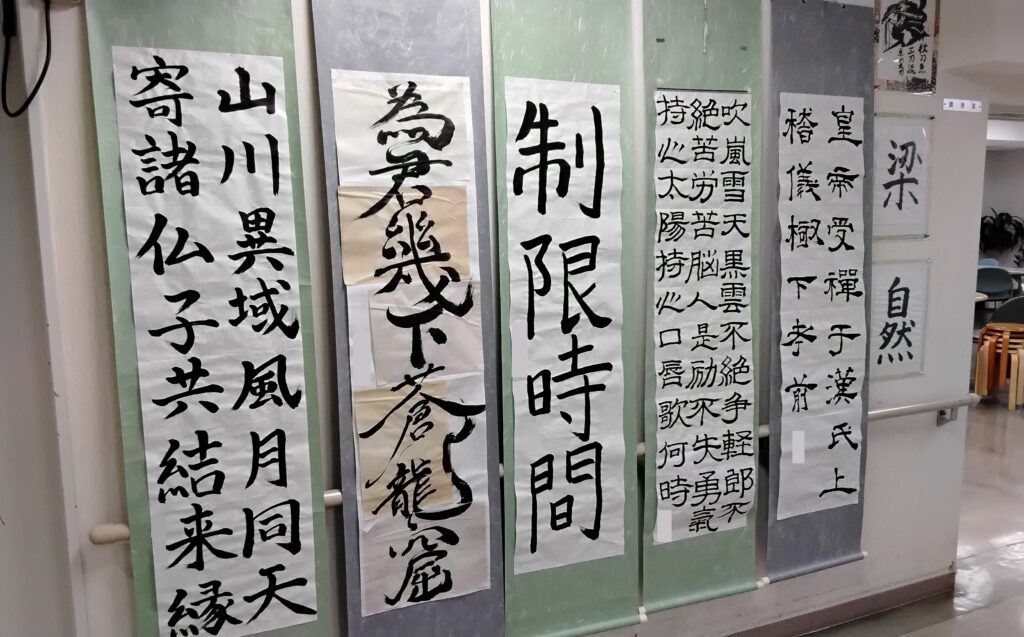 山川異域風月同天
寄諸仏子共結来縁
為君幾下蒼龍窟
制限時間
吹嵐雪天黒雲不絶争軽郎不
絶苦労苦脳人是励不失勇氣
持心太陽持心口唇歌何時
皇帝受禪于漢氏上
稽儀極下孝前
梁
自然